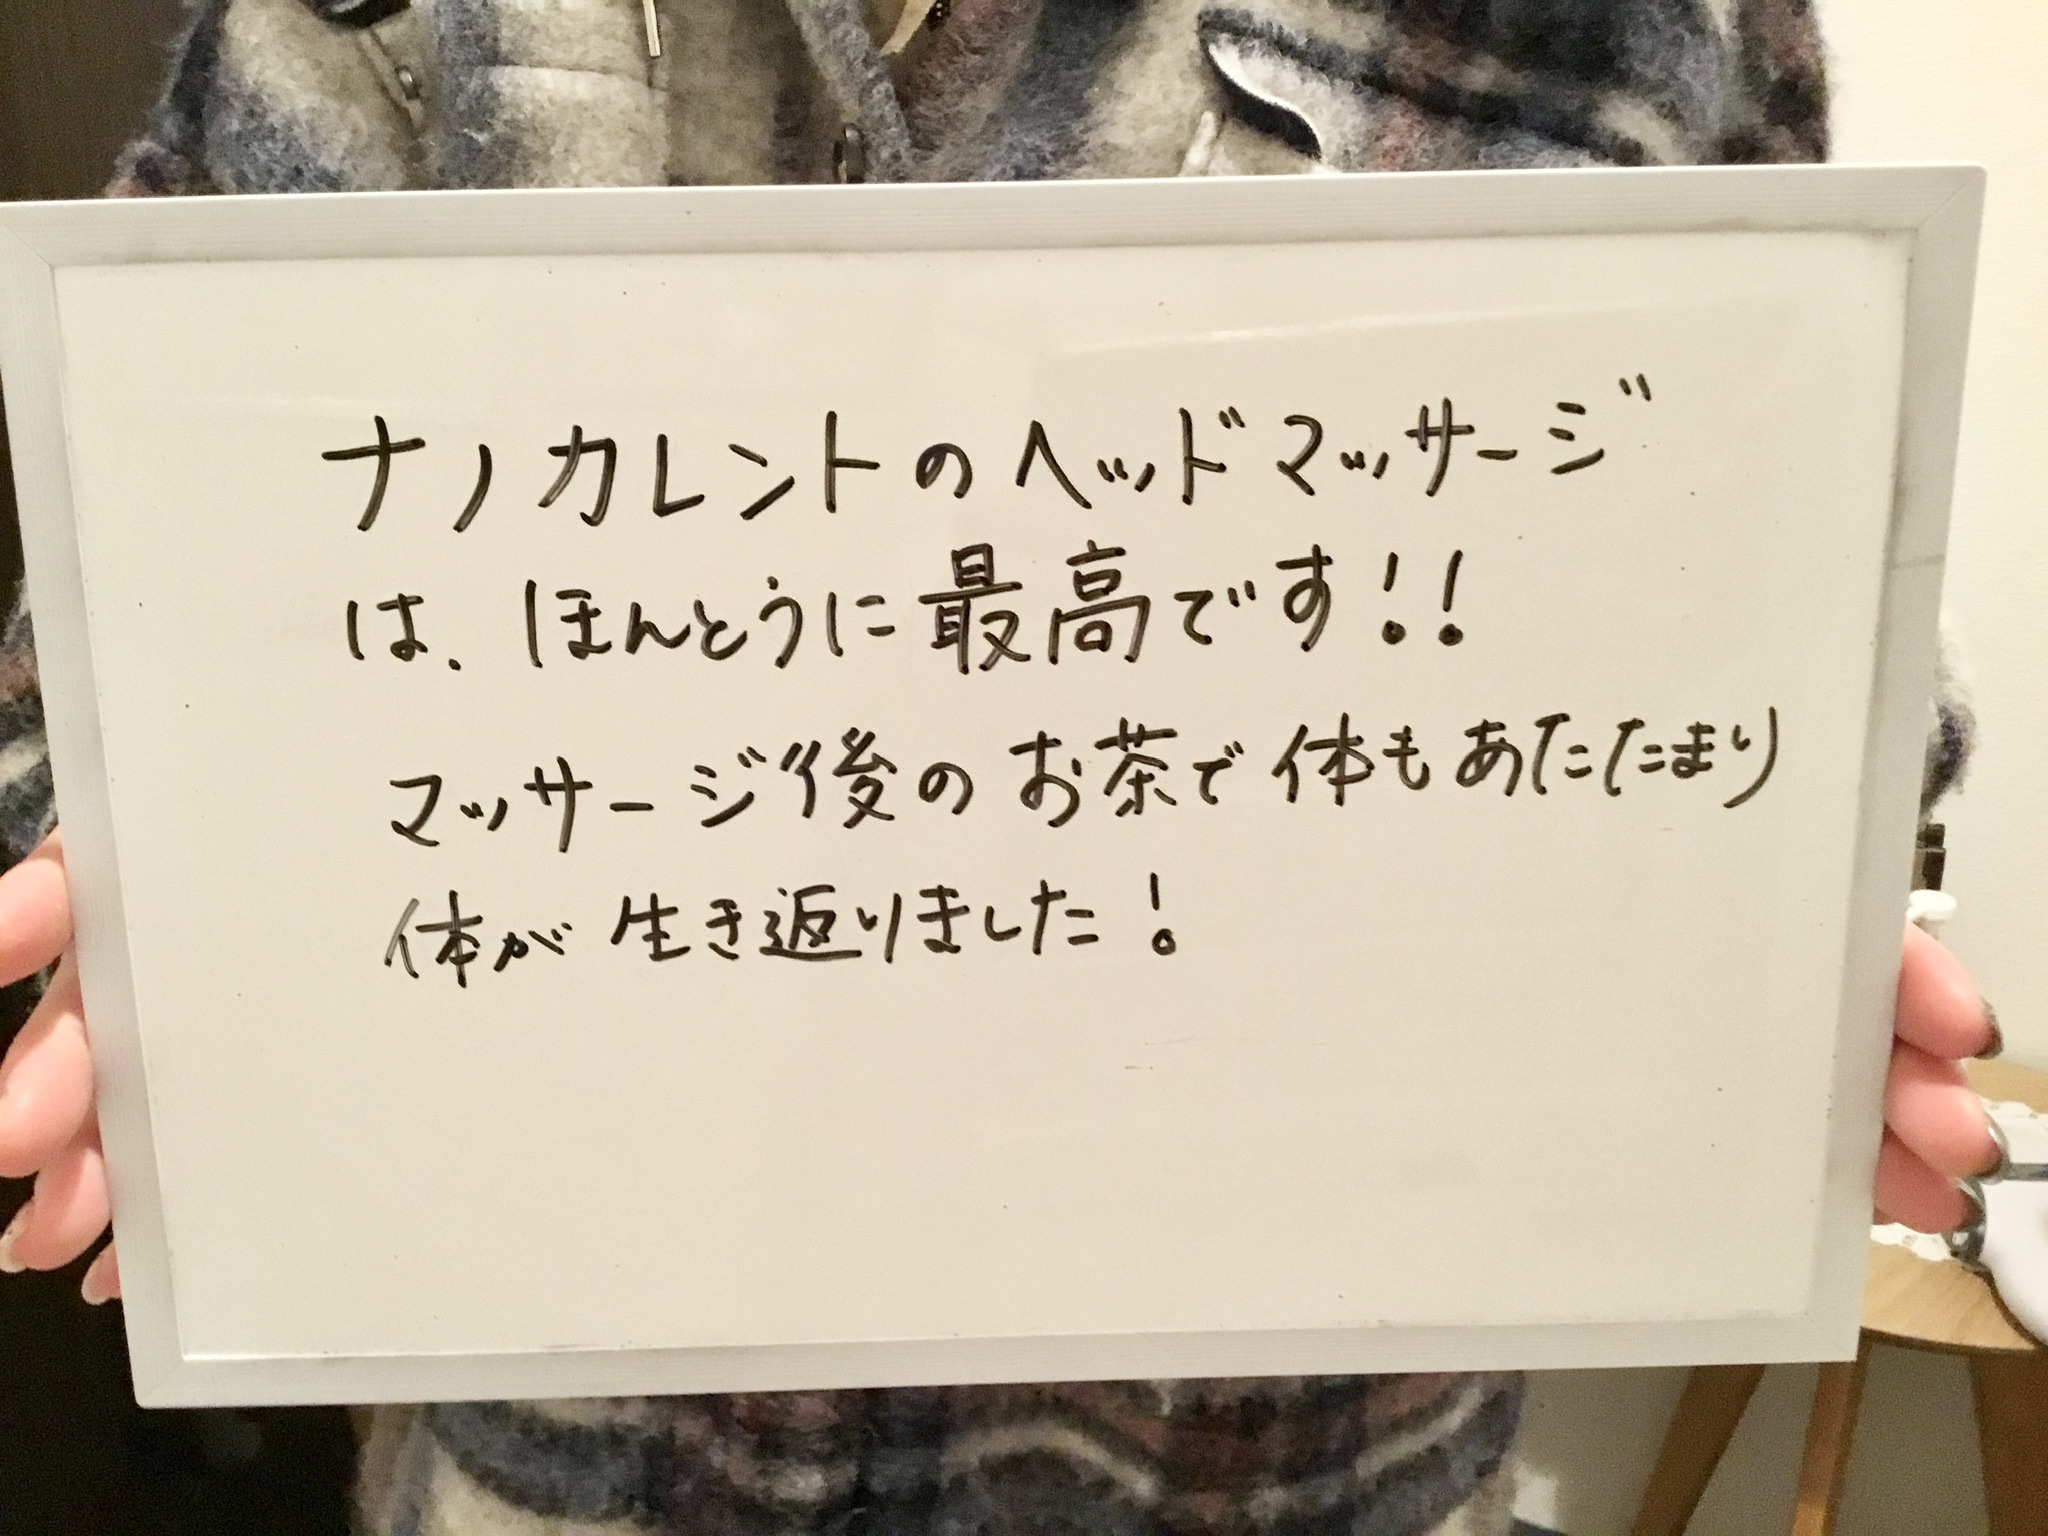 ナノカレントのヘッドマッサージ
は、ほんとうに最高です!!
マッサージ後のお茶で体もあたたまり
体が生き返りました!